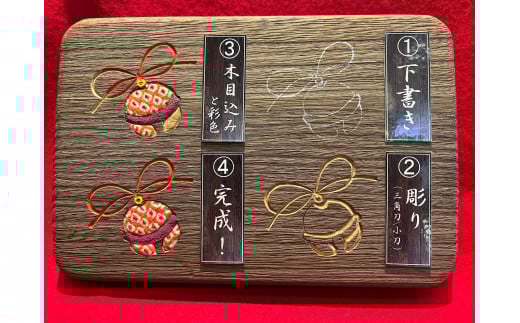 ①下書き
②彫り
（三角刀/小刀）
③木目込み
と彩色
④完成！